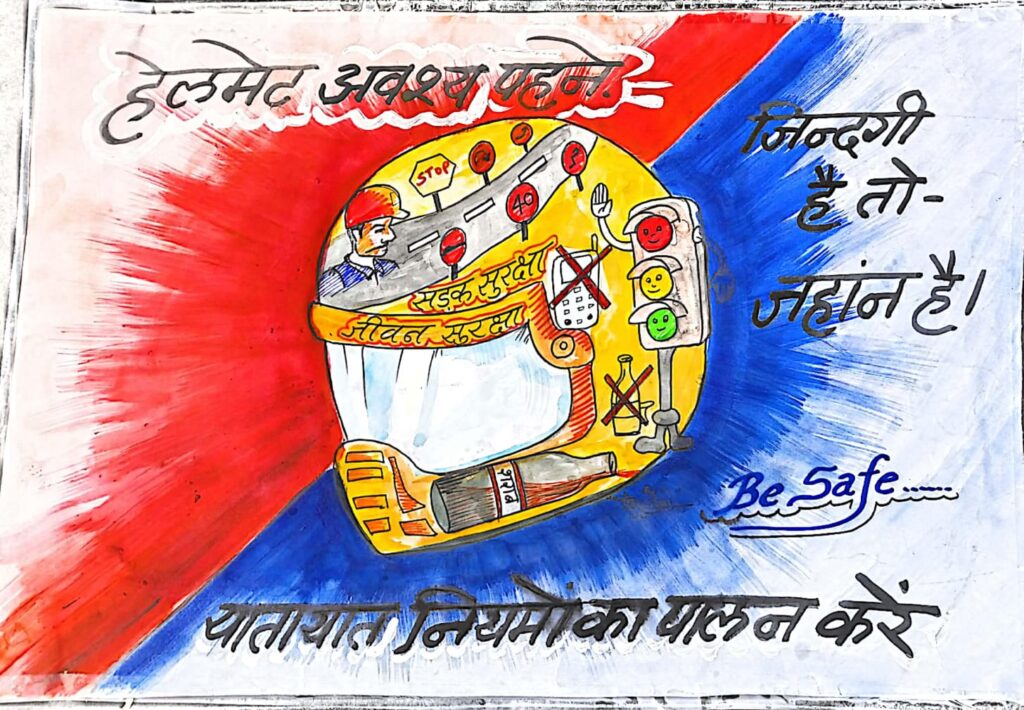 हेलमेट अवश्य पहने.
जिन्दगी
है तो-
जहांन है।
STOP
40
सड़क सुरक्षा
जीवन सुरक्षा
शराब
Be Safe......
यातायात नियमों का पालन करें